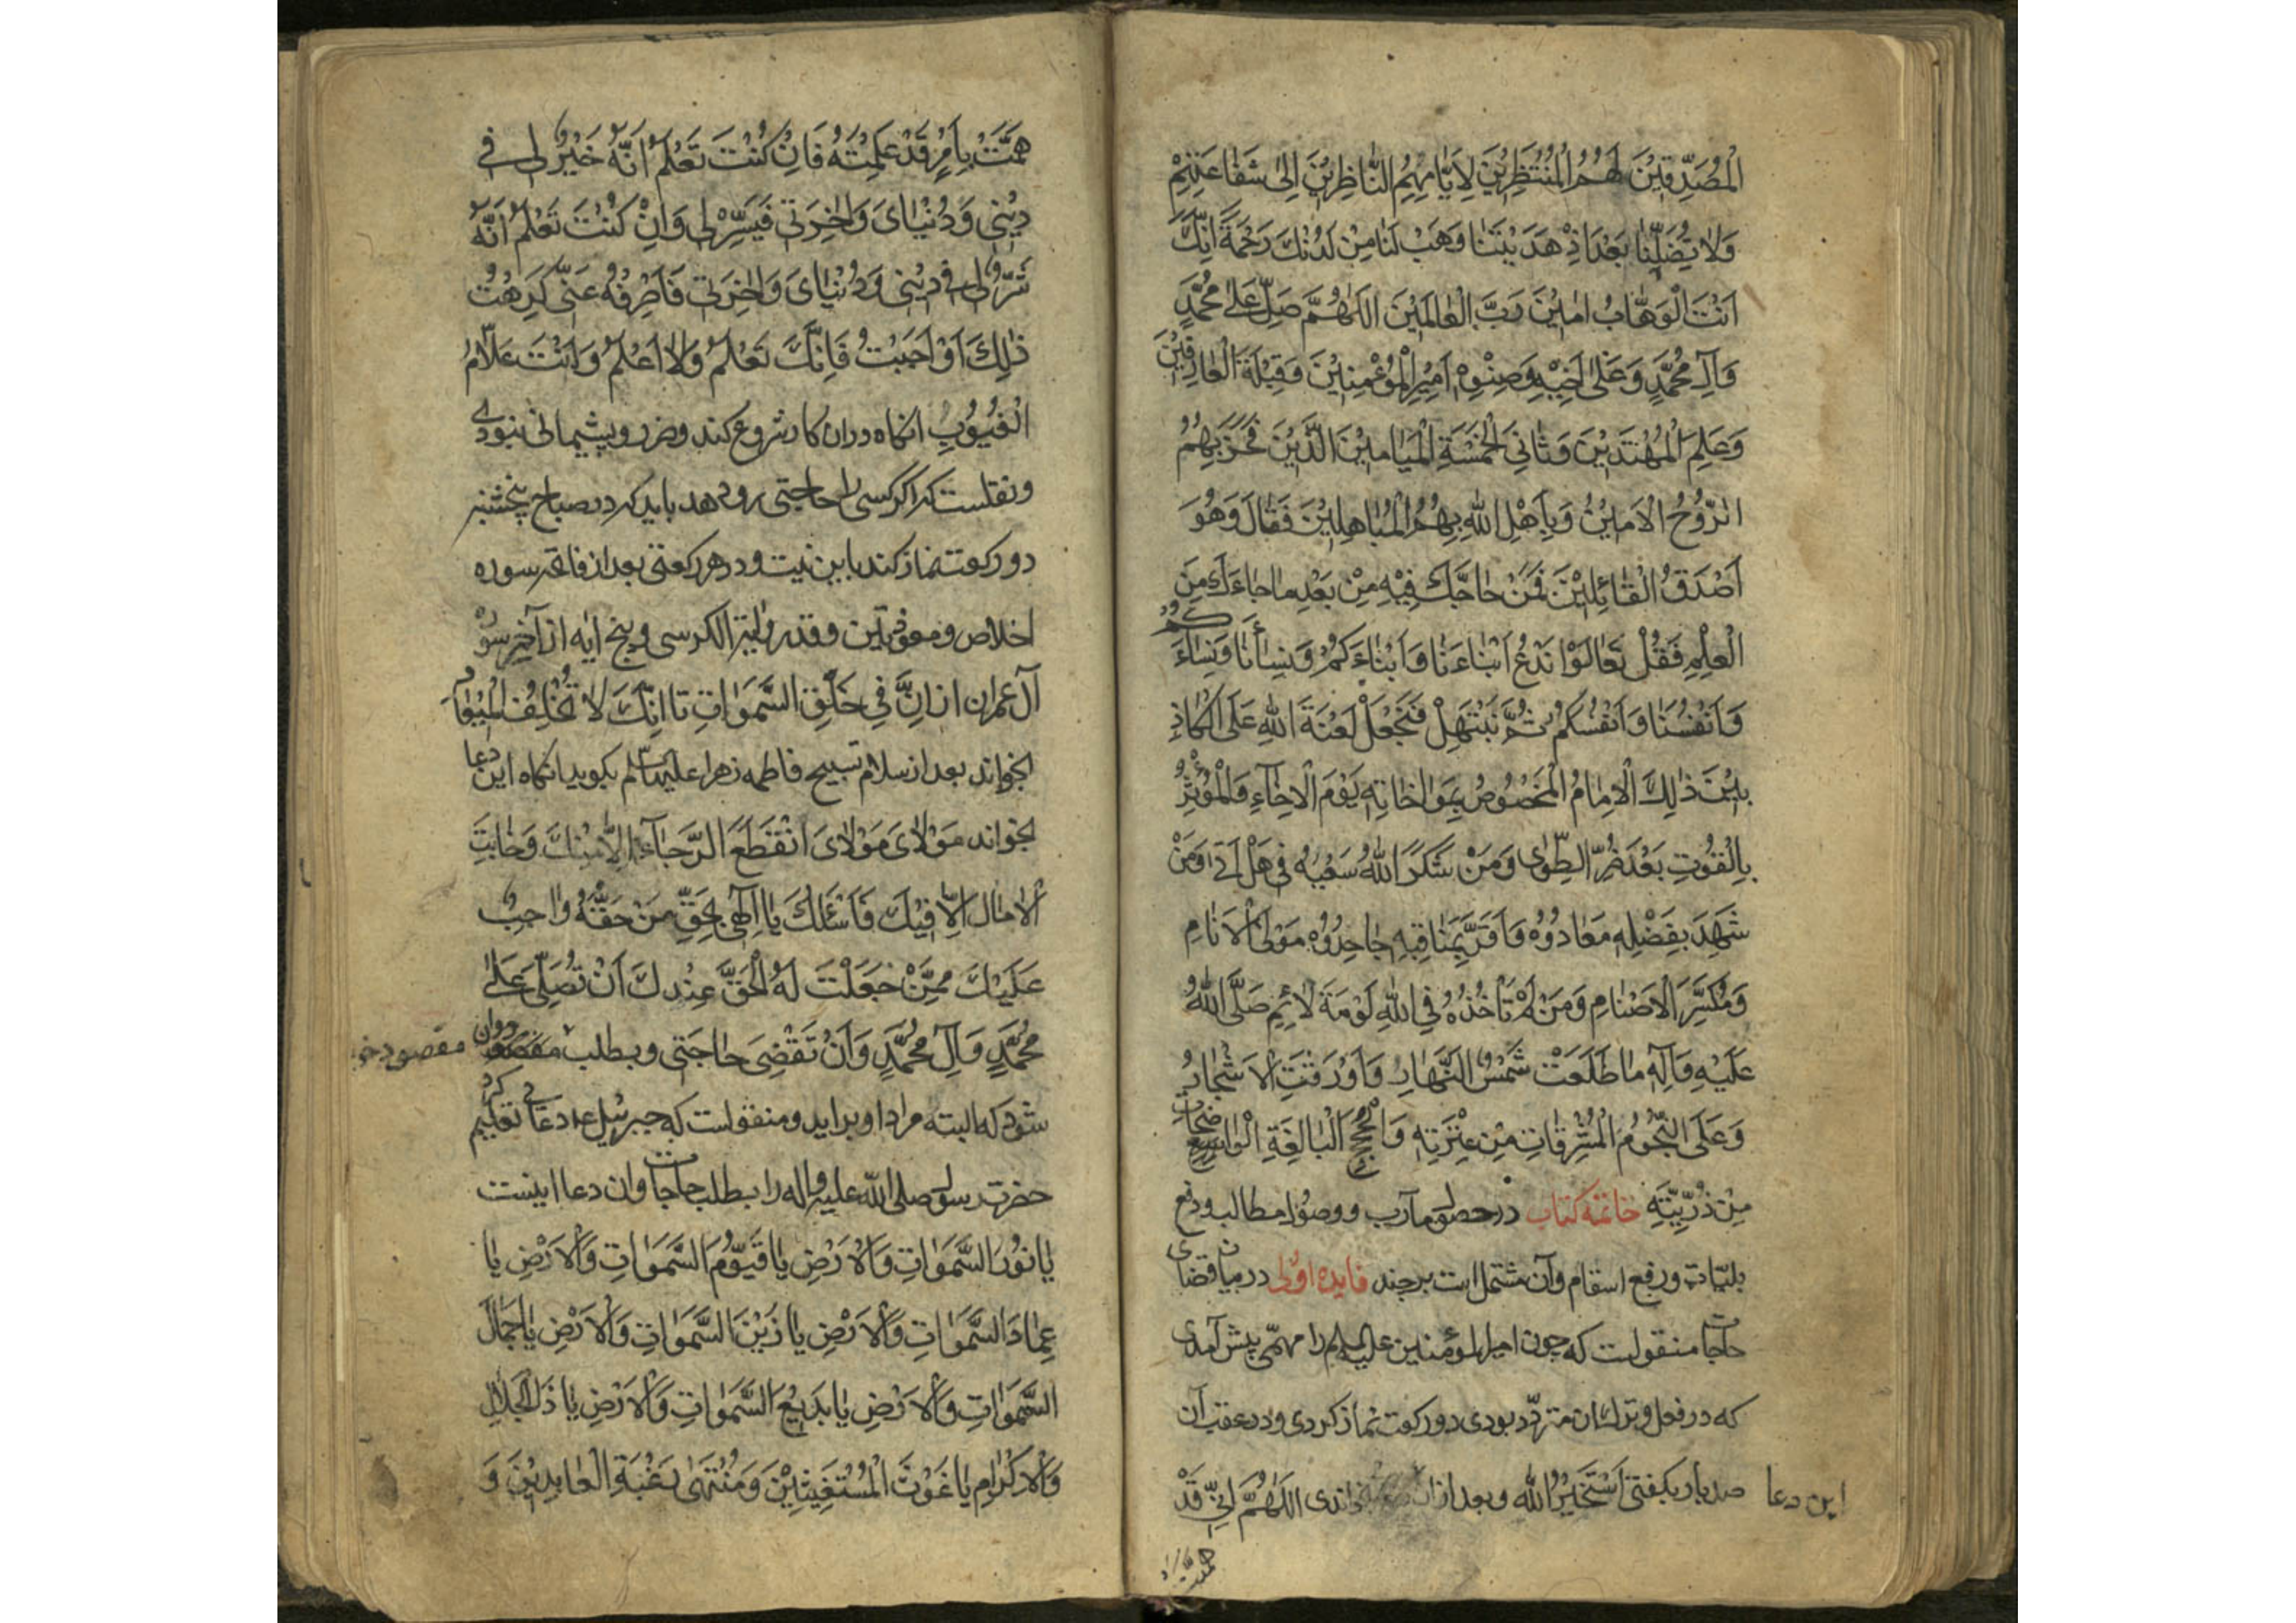 الْمُصَدِّقِيْنَ لَهُمُ الْمُنْتَظِرِيْنَ لِاَيَّامِهِمُ النَّاظِرِيْنَ اِلٰى شَفَاعَتِهِمْ
وَلَا تُضِلَّنَا بَعْدَ اِذْ هَدَيْتَنَا وَهَبْ لَنَا مِنْ لَدُنْكَ رَحْمَةً اِنَّكَ
اَنْتَ الْوَهَّابُ اٰمِيْنَ رَبَّ الْعَالَمِيْنَ اَللّٰهُمَّ صَلِّ عَلٰى مُحَمَّدٍ
وَآلِ مُحَمَّدٍ وَعَلٰى اَخِيْهِ وَصِنْوِهِ اَمِيْرِ الْمُؤْمِنِيْنَ وَقِبْلَةَ الْعَارِفِيْنَ
وَعَلَمِ الْمُهْتَدِيْنَ وَثَانِيَ الْخَمْسَةِ الْمَيَامِيْنَ الَّذِيْنَ فَخَرَ بِهِمُ
الرُّوْحُ الْاَمِيْنُ وَبَاهَلَ اللّٰهُ بِهِمُ الْمُبَاهِلِيْنَ فَقَالَ وَهُوَ
اَصْدَقُ الْقَائِلِيْنَ فَمَنْ حَاجَّكَ فِيْهِ مِنْ بَعْدِ مَا جَاءَكَ مِنَ
الْعِلْمِ فَقُلْ تَعَالَوْا نَدْعُ اَبْنَاءَنَا وَاَبْنَاءَكُمْ وَنِسَاءَنَا وَنِسَاءَكُمْ
وَاَنْفُسَنَا وَاَنْفُسَكُمْ ثُمَّ نَبْتَهِلْ فَنَجْعَلْ لَعْنَةَ اللّٰهِ عَلَى الْكَاذِ
بِيْنَ ذٰلِكَ الْاِمَامُ الْمَخْصُوْصُ بِمَوَاخَاتِهِ يَوْمَ الْاِخَآءِ وَالْمُؤْثِرُ
بِالْقُوْتِ بَعْدَ ضُرِّ الطِّوٰى وَمَنْ شَكَرَ اللّٰهُ سَعْيَهُ فِي هَلْ اَتٰى وَمَنْ
شَهِدَ بِفَضْلِهِ مَعَادُوْهُ وَاَقَرَّ بِمَنَاقِبِهِ جَاحِدُوْهُ مَوْلَى الْاَنَامِ
وَمُكَسِّرَ الْاَصْنَامِ وَمَنْ لَمْ تَأْخُذْهُ فِي اللّٰهِ لَوْمَةَ لَائِمٍ صَلَّى اللّٰهُ
عَلَيْهِ وَآلِهِ مَا طَلَعَتْ شَمْسُ النَّهَارِ وَاَوْرَقَتِ الْاَشْجَارُ
وَعَلَى النُّجُوْمِ الْمُشْرِقَاتِ مِنْ عِتْرَتِهِ وَالْحُجَجِ الْبَالِغَةِ الْوَاضِحَاتِ
مِنْ ذُرِّيَّتِهِ خاتمه كتاب در حصول مآرب ووصول مطالب ودفع
بليّات ورفع اسقام وآن مشتمل است بر چند فايده اولى در بيان قضاى
حاجات منقولست كه چون اميرالمؤمنين عليه السلم را مهمّى پيش آمدى
كه در فعل وترك ان متردّد بودى دو ركعت نماز كردى ودر عقب آن
صد بار بگفتى اَسْتَخِيْرُ اللّٰه وبعد ازان خواندى اَللّٰهُمَّ اِنِّي قَدْ
اين دعا
هممت
هَمَمْتُ بِاَمْرٍ قَدْ عَلِمْتَهُ فَاِنْ كُنْتَ تَعْلَمُ اَنَّهُ خَيْرٌ لِى فِى
دِيْنِى وَدُنْيَاىَ وَاٰخِرَتِى فَيَسِّرْهُ لِى وَاِنْ كُنْتَ تَعْلَمُ اَنَّهُ
شَرٌّ لِى فِى دِيْنِى وَدُنْيَاىَ وَاٰخِرَتِى فَاصْرِفْهُ عَنِّى كَرِهْتُ
ذٰلِكَ اَوْ اَحْبَبْتُ فَاِنَّكَ تَعْلَمُ وَلَا اَعْلَمُ وَاَنْتَ عَلَّامُ
الْغُيُوْبِ انگاه دران كار شروع كند وضرر وپشيمانى نبودى
ونقلست كه اگر كسى را حاجتى رو دهد بايد كه در صباح پنجشنبه
دو ركعت نماز كند باين نيت ودر هر ركعتى بعد از فاتحه سوره
اخلاص ومعوذتين وقدر وآية الكرسى وپنج ايه از آخر سوره
آل عمران از اِنَّ فِي خَلْقِ السَّمَوَاتِ تا اِنَّكَ لَا تُخْلِفُ الْمِيْعَادَ
بخواند بعد از سلام تسبيح فاطمه زهرا عليها السلم بگويد انگاه اين دعا
بخواند مَوْلَاىَ مَوْلَاىَ انْقَطَعَ الرَّجَآءُ اِلَّا مِنْكَ وَخَابَتِ
الْاٰمَالُ اِلَّا فِيْكَ فَاَسْئَلُكَ يَا اِلٰهِى بِحَقِّ مَنْ حَقُّهُ وَاجِبٌ
عَلَيْكَ مِمَّنْ جَعَلْتَ لَهُ الْحَقَّ عِنْدَكَ اَنْ تُصَلِّىَ عَلٰى
مُحَمَّدٍ وَآلِ مُحَمَّدٍ وَاَنْ تَقْضِىَ حَاجَتِى وبطلب مقصود روان
مقصود خو
شود كه البته مراد او برايد ومنقولست كه جبرئيل ع دعائى تعليم كرد
حضرت رسول صلى اللّٰه عليه واله را بطلب حاجات وان دعا اينست
يَا نُوْرَ السَّمَوَاتِ وَالْاَرْضِ يَا قَيُّوْمَ السَّمَوَاتِ وَالْاَرْضِ يَا
عِمَادَ السَّمَوَاتِ وَالْاَرْضِ يَا زَيْنَ السَّمَوَاتِ وَالْاَرْضِ يَا جَمَالَ
السَّمَوَاتِ وَالْاَرْضِ يَا بَدِيْعَ السَّمَوَاتِ وَالْاَرْضِ يَا ذَا الْجَلَالِ
وَالْاِكْرَامِ يَا غَوْثَ الْمُسْتَغِيْثِيْنَ وَمُنْتَهٰى رَغْبَةِ الْعَابِدِيْنَ وَ